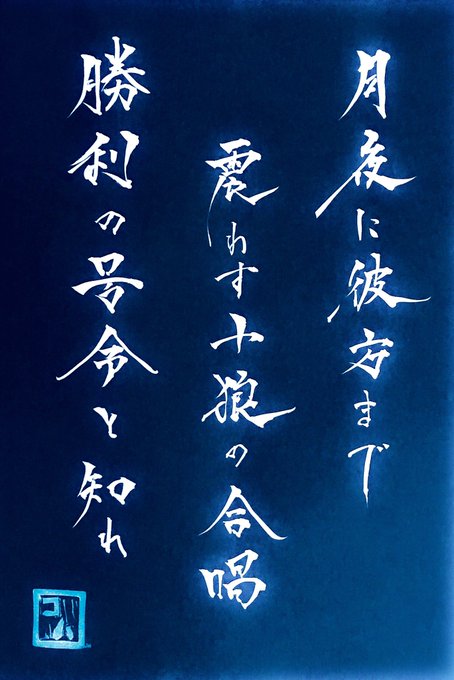 月夜に彼方まで
震わす十狼の合唱
勝利の号令と知れ